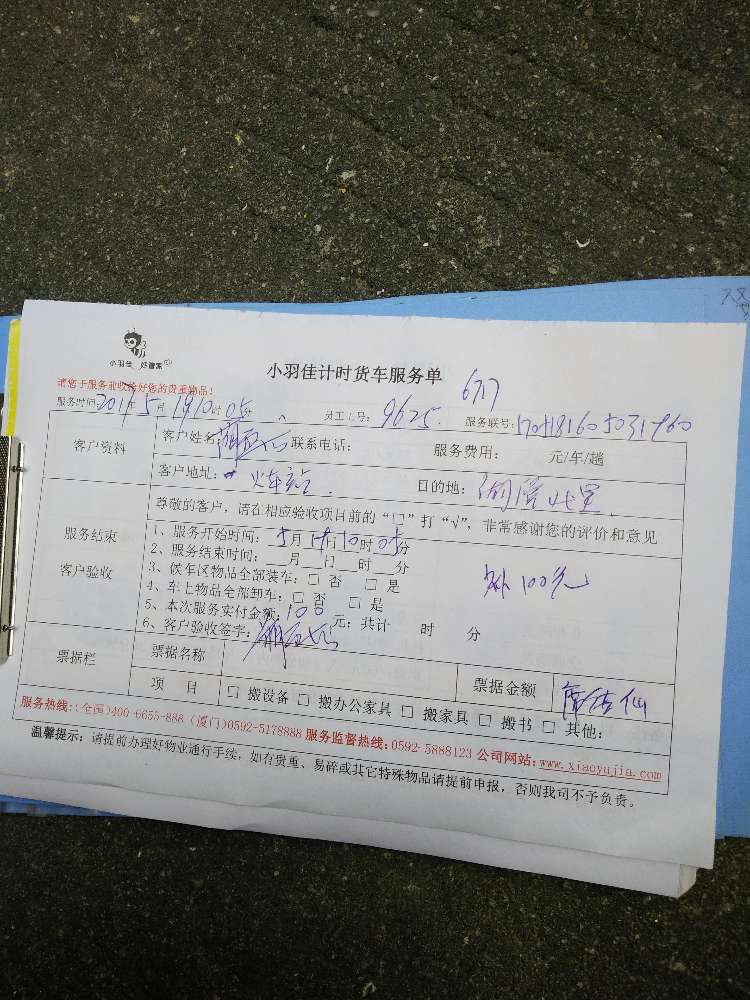 小羽佳 好管家
小羽佳计时货车服务单
请您于服务前收拾好您的贵重物品!
服务时间: 5月19 10时05分 员工工号: 9625 服务联号:
客户资料 客户姓名: 联系电话: 服务费用: 元/车/趟
客户地址: 火车站 目的地:
尊敬的客户, 请在相应验收项目前的“□”打“√”, 非常感谢您的评价和意见
服务结束
客户验收
1、服务开始时间: 5月19日10时05分
2、服务结束时间: __月__日__时__分
3、候车区物品全部装车: □ 否 □ 是
4、车上物品全部卸车: □ 否 □ 是
5、本次服务实付金额: 100 元: 共计 时 分
100元
6、客户验收签字:
票据栏 票据名称 票据金额
项 目 □ 搬设备 □ 搬办公家具 □ 搬家具 □ 搬书 □ 其他:
服务热线:(全国)400-6655-888 (厦门)0592-5178888 服务监督热线:0592-5888123 公司网站:www.xiaoyujia.com
温馨提示: 请提前办理好物业通行手续, 如有贵重、易碎或其它特殊物品请提前申报, 否则我司不予负责。